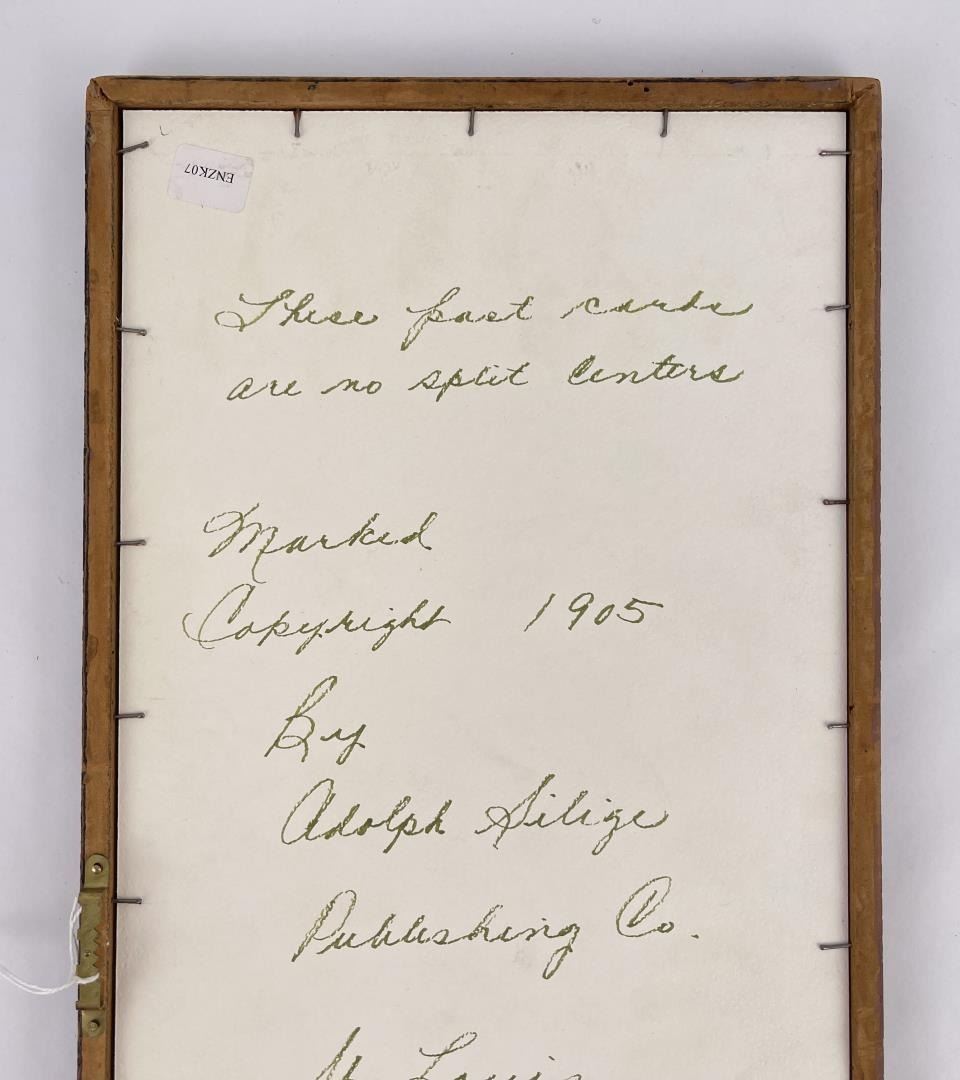 ENZK07
These post cards
are no split Centers
Marked
Copyright 1905
By
Adolph Silige
Publishing Co.
St Louis